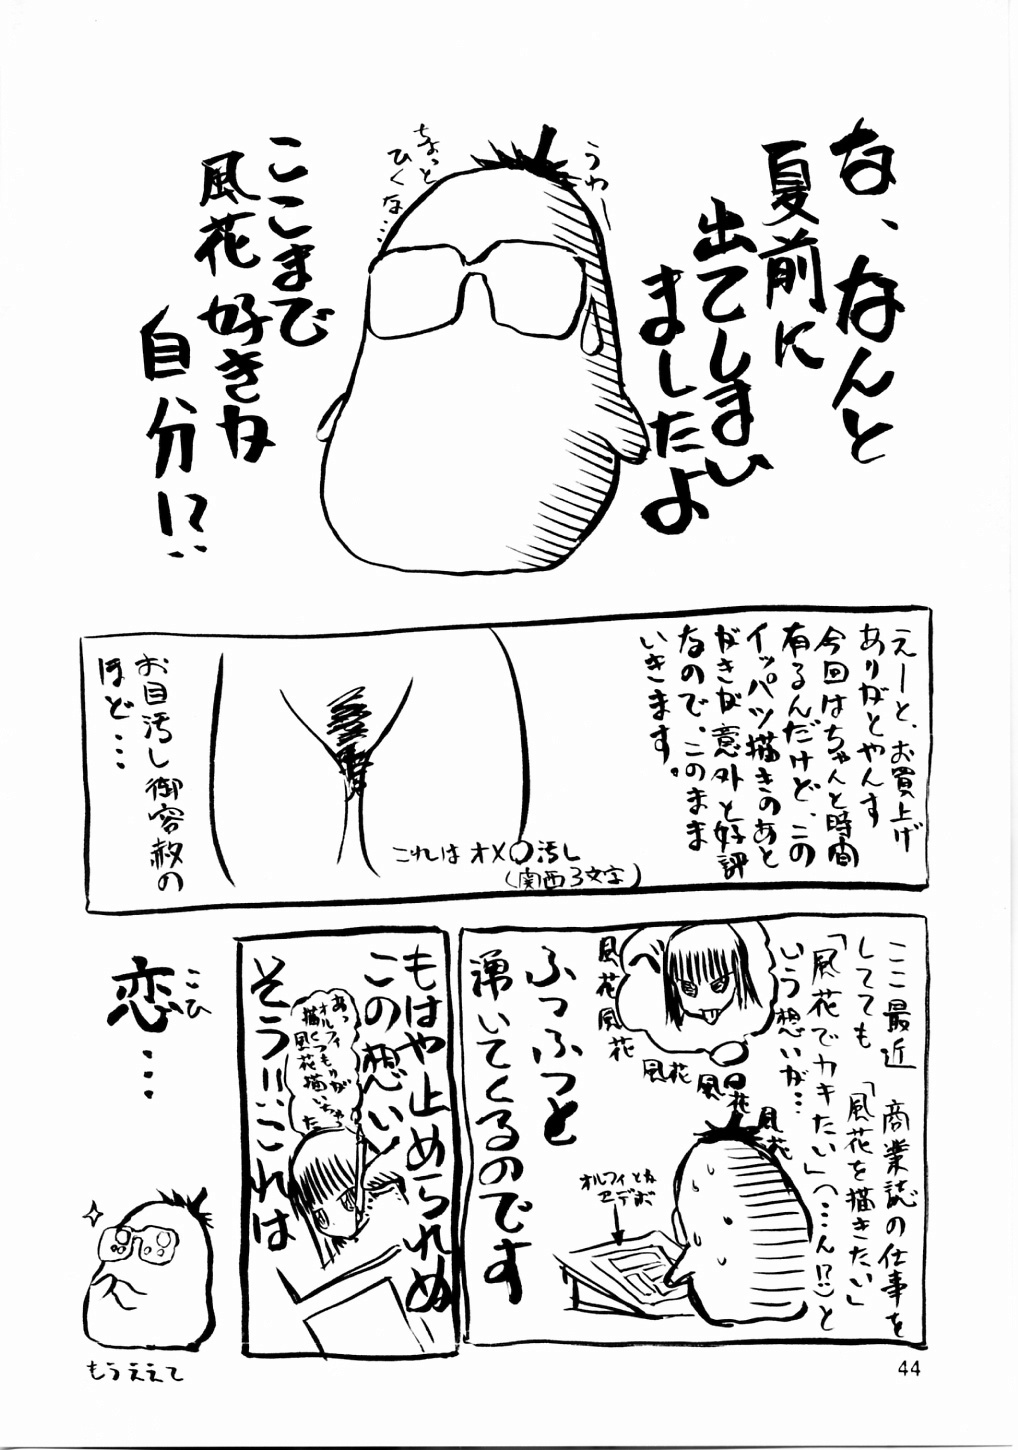 な、なんと
夏前に
出てしまい
ましたよ
うわー
ちょっと
ひくな…
ここまで
風花好きカ
自分!?
えーと、お買上げ
ありがとやんす
今回はちゃんと時間
有るんだけど、この
イッパツ描きのあと
がきが意外と好評
なので、このまま
いきます。
これはオメ〇汚し
(関西3文字)
お目汚し御容赦の
ほど…
ここ最近 商業誌の仕事を
してても 「風花を描きたい」
「風花でカキたい」(…ん!?)と
いう想いが…
風花
風花
風花
風花
風花
オルフィとな
セデボ
ふつふつと
湧いてくるのです
もはや止められぬ
この想い
あっ
オルフィ
描くつもりが
風花描いちゃ
た
そう!!これは
恋…
こひ
もうええて
44